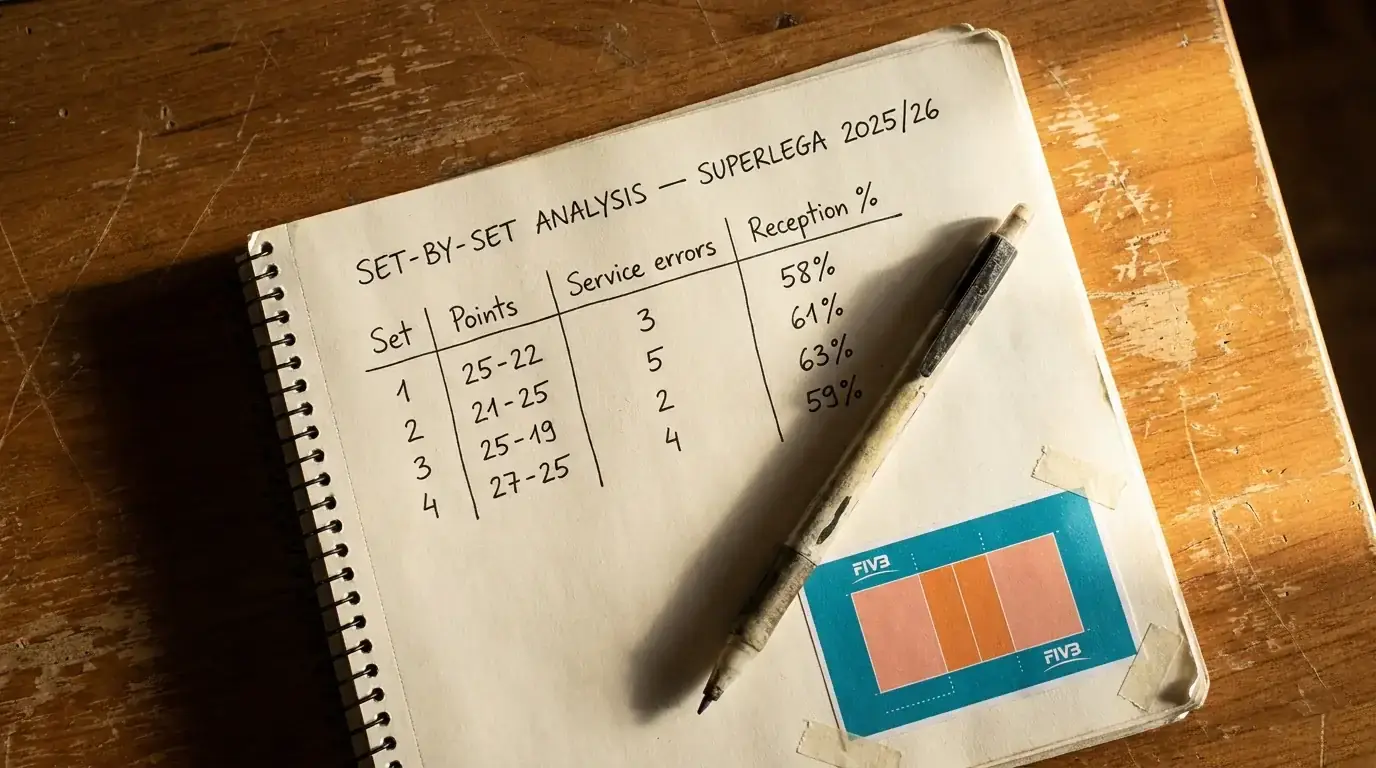 SET-BY-SET ANALYSIS — SUPERLEGA 2025/26
Set Points Service errors Reception %
1 25-22 3 58%
2 21-25 5 61%
3 25-19 2 63%
4 27-25 4 59%
FIVB
FIVB